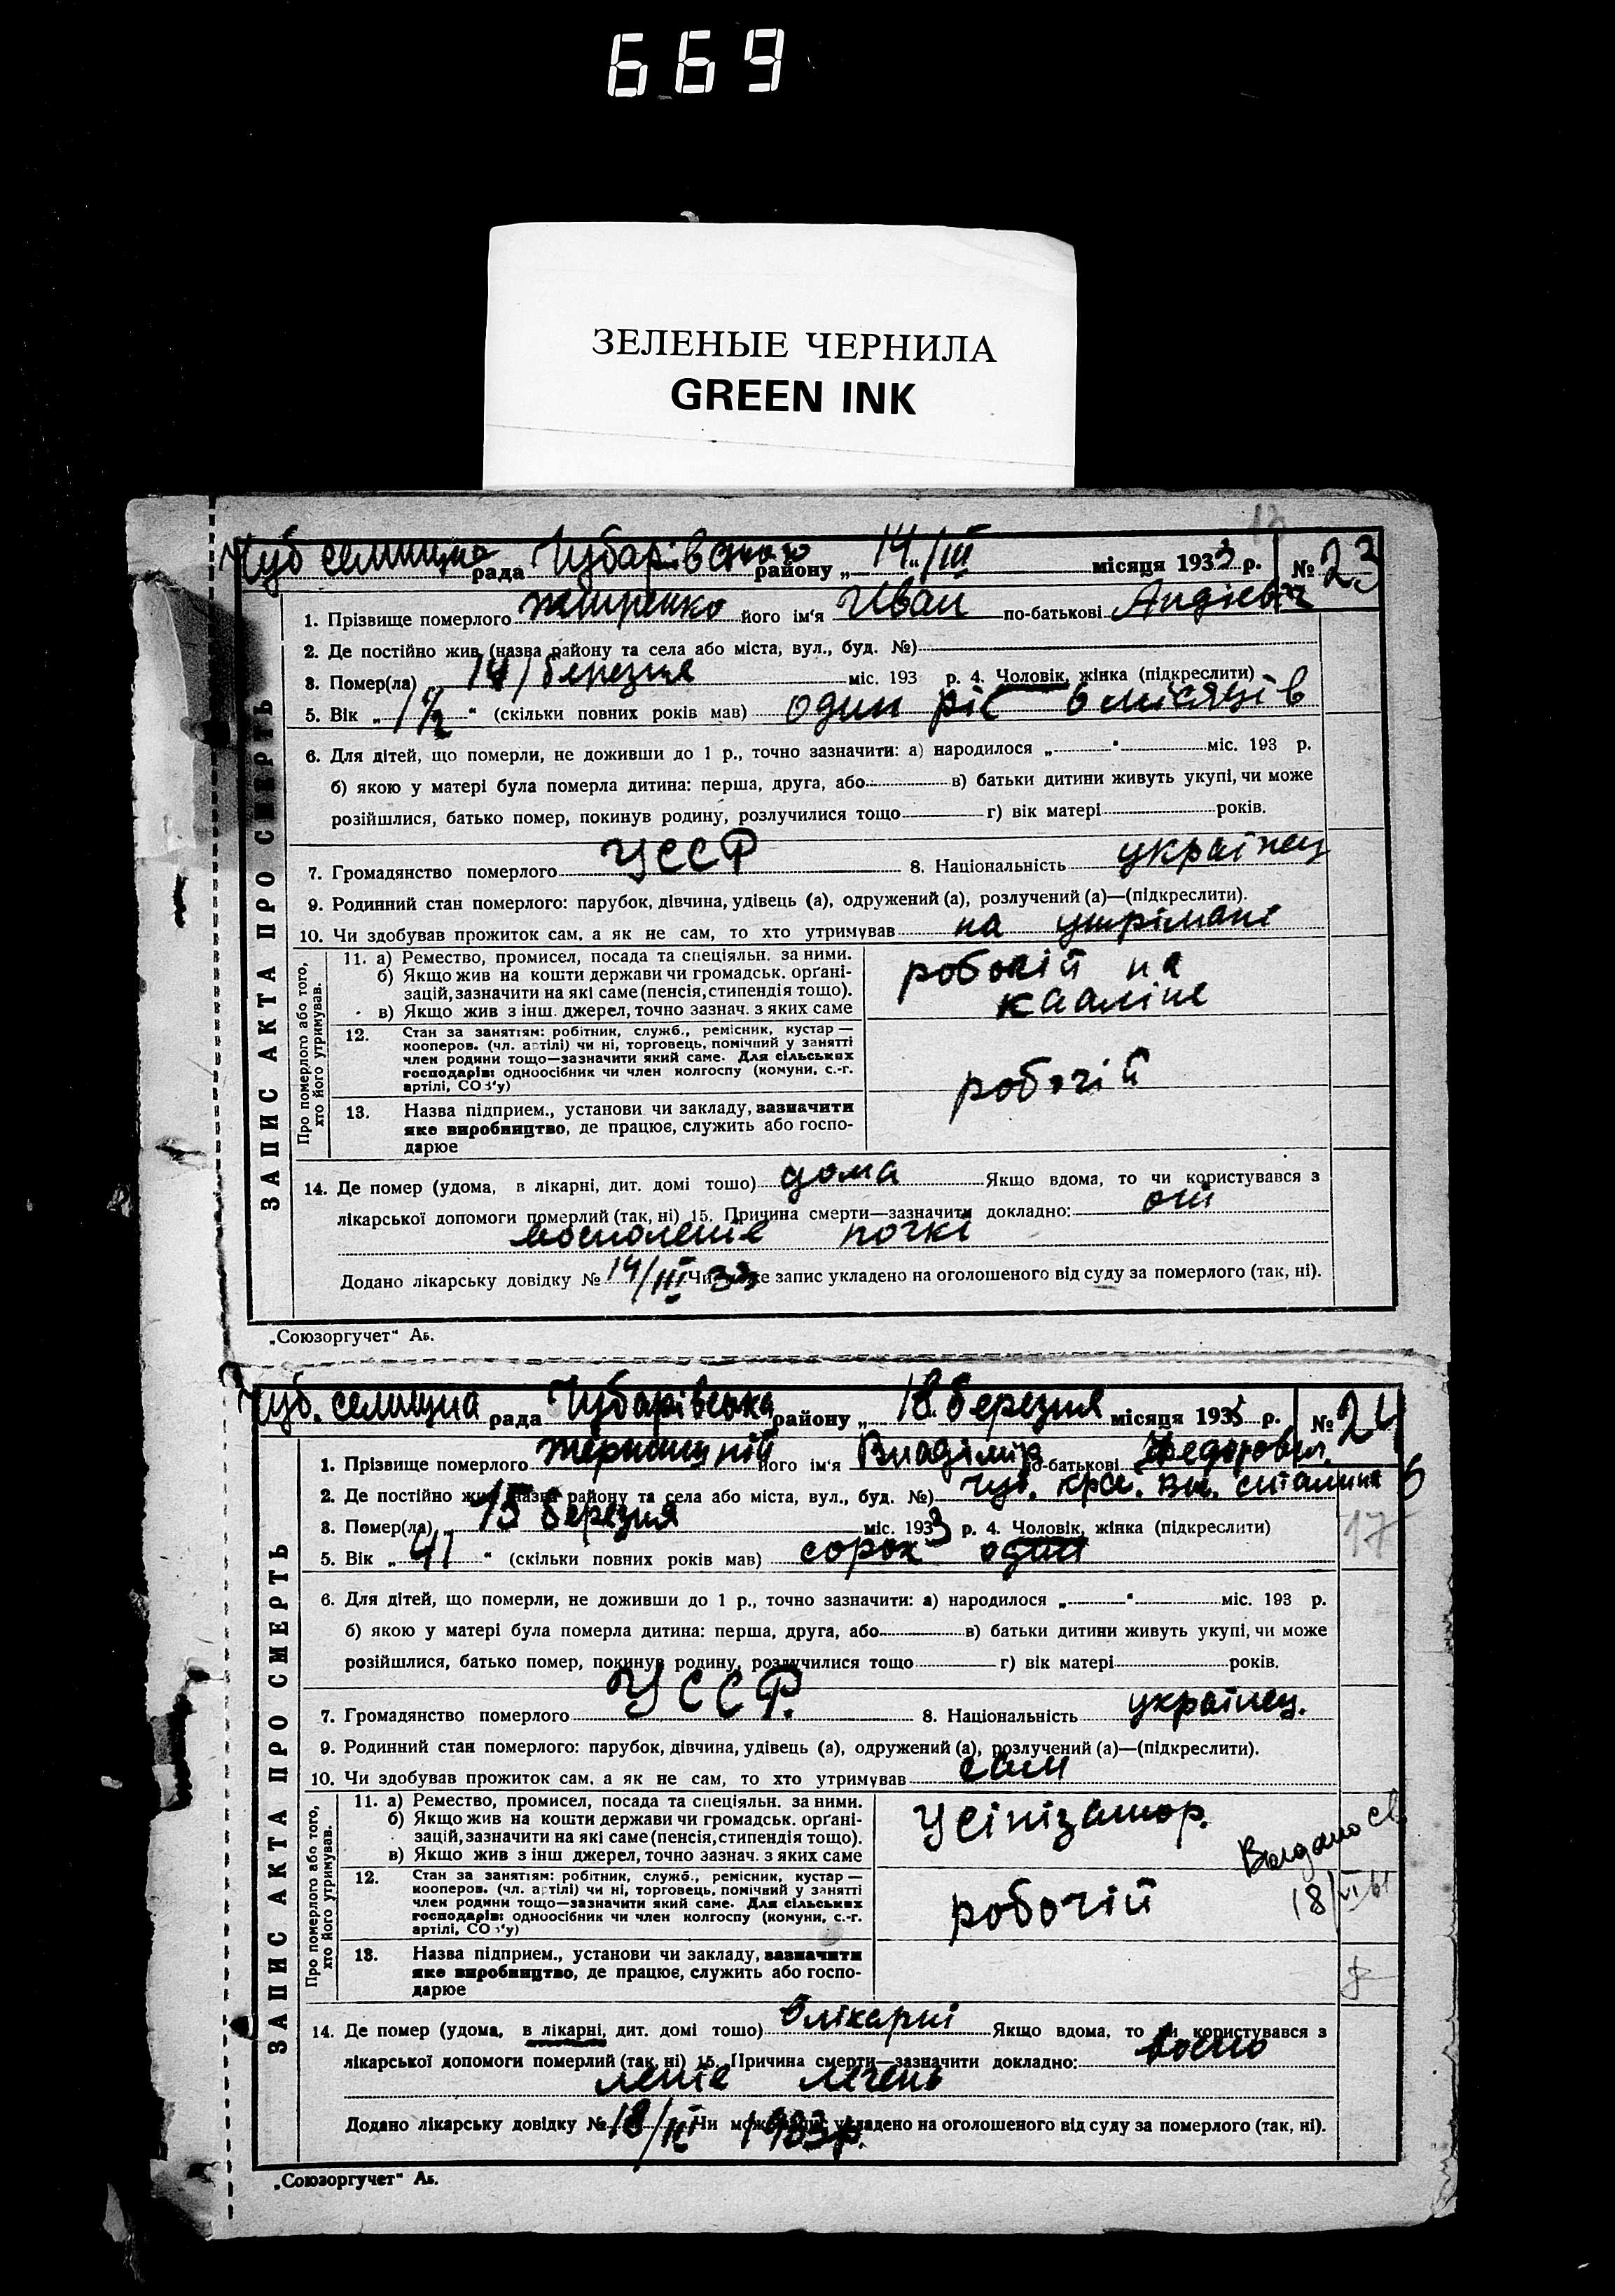 669
ЗЕЛЕНЫЕ ЧЕРНИЛА
GREEN INK
рада Чубарівского району „14“/III місяця 1933 р. № 23
ЗАПИС АКТА ПРО СМЕРТЬ
1. Прізвище померлого його ім'я Иван по-батькові
2. Де постійно жив (назва району та села або міста, вул., буд. №)
3. Помер(ла) 14/березня міс. 193 р. 4. Чоловік, жінка (підкреслити)
5. Вік „1 1/2“ (скільки повних років мав) один ріс 6 місяців
6. Для дітей, що померли, не доживши до 1 р., точно зазначити: а) народилося „ “ міс. 193 р.
б) якою у матері була померла дитина: перша, друга, або в) батьки дитини живуть укупі, чи може
розійшлися, батько помер, покинув родину, розлучилися тощо г) вік матері років.
7. Громадянство померлого УССР 8. Національність українец
9. Родинний стан померлого: парубок, дівчина, удівець (а), одружений (а), розлучений (а)—(підкреслити).
10. Чи здобував прожиток сам, а як не сам, то хто утримував на утрімані
Про померлого або того, хто його утримував.
11. а) Ремество, промисел, посада та спеціяльн. за ними.
б) Якщо жив на кошти держави чи громадськ. орґані-
зацій, зазначити на які саме (пенсія, стипендія тощо).
в) Якщо жив з інш. джерел, точно зазнач. з яких саме
робочій на
12. Стан за занятіям: робітник, служб., ремісник, кустар —
кооперов. (чл. артілі) чи ні, торговець, помічний у занятті
член родини тощо—зазначити який саме. Для сільських
господарів: одноосібник чи член колгоспу (комуни, с.-г.
артілі, СОЗ'у)
робочій
13. Назва підприєм., установи чи закладу, зазначити
яке виробництво, де працює, служить або госпо-
дарює
14. Де помер (удома, в лікарні, дит. домі тошо) дома Якщо вдома, то чи користувався з
лікарської допомоги померлий (так, ні) 15. Причина смерти—зазначити докладно:
восполеніє почкі
Додано лікарську довідку № 14/III 33 Чи запис укладено на оголошеного від суду за померлого (так, ні).
„Союзоргучет“ Аб.
Чуб. селищна рада Чубарівська району „18 березня місяця 1933 р. № 24
ЗАПИС АКТА ПРО СМЕРТЬ
1. Прізвище померлого його ім'я Владімір по-батькові
2. Де постійно жив (назва району та села або міста, вул., буд. №)
3. Помер(ла) 15 березня міс. 1933 р. 4. Чоловік, жінка (підкреслити)
17
5. Вік „41“ (скільки повних років мав) сорок один
6. Для дітей, що померли, не доживши до 1 р., точно зазначити: а) народилося „ “ міс. 193 р.
б) якою у матері була померла дитина: перша, друга, або в) батьки дитини живуть укупі, чи може
розійшлися, батько помер, покинув родину, розлучилися тощо г) вік матері років.
7. Громадянство померлого УССР. 8. Національність українец.
9. Родинний стан померлого: парубок, дівчина, удівець (а), одружений (а), розлучений (а)—(підкреслити).
10. Чи здобував прожиток сам, а як не сам, то хто утримував сам
Про померлого або того, хто його утримував.
11. а) Ремество, промисел, посада та спеціяльн. за ними.
б) Якщо жив на кошти держави чи громадськ. орґані-
зацій, зазначити на які саме (пенсія, стипендія тощо).
в) Якщо жив з інш джерел, точно зазнач. з яких саме
12. Стан за занятіям: робітник, служб., ремісник, кустар —
кооперов. (чл. артілі) чи ні, торговець, помічний у занятті
член родини тощо—зазначити який саме. Для сільських
господарів: одноосібник чи член колгоспу (комуни, с.-г.
артілі, СОЗ'у)
робочій
13. Назва підприєм., установи чи закладу, зазначити
яке виробництво, де працює, служить або госпо-
дарює
14. Де помер (удома, в лікарні, дит. домі тошо) влікарні Якщо вдома, то чи користувався з
лікарської допомоги померлий (так, ні) 15. Причина смерти—зазначити докладно: воспо
леніє легень
Додано лікарську довідку № 18/III 1933р. Чи укладено на оголошеного від суду за померлого (так, ні).
„Союзоргучет“ Аб.